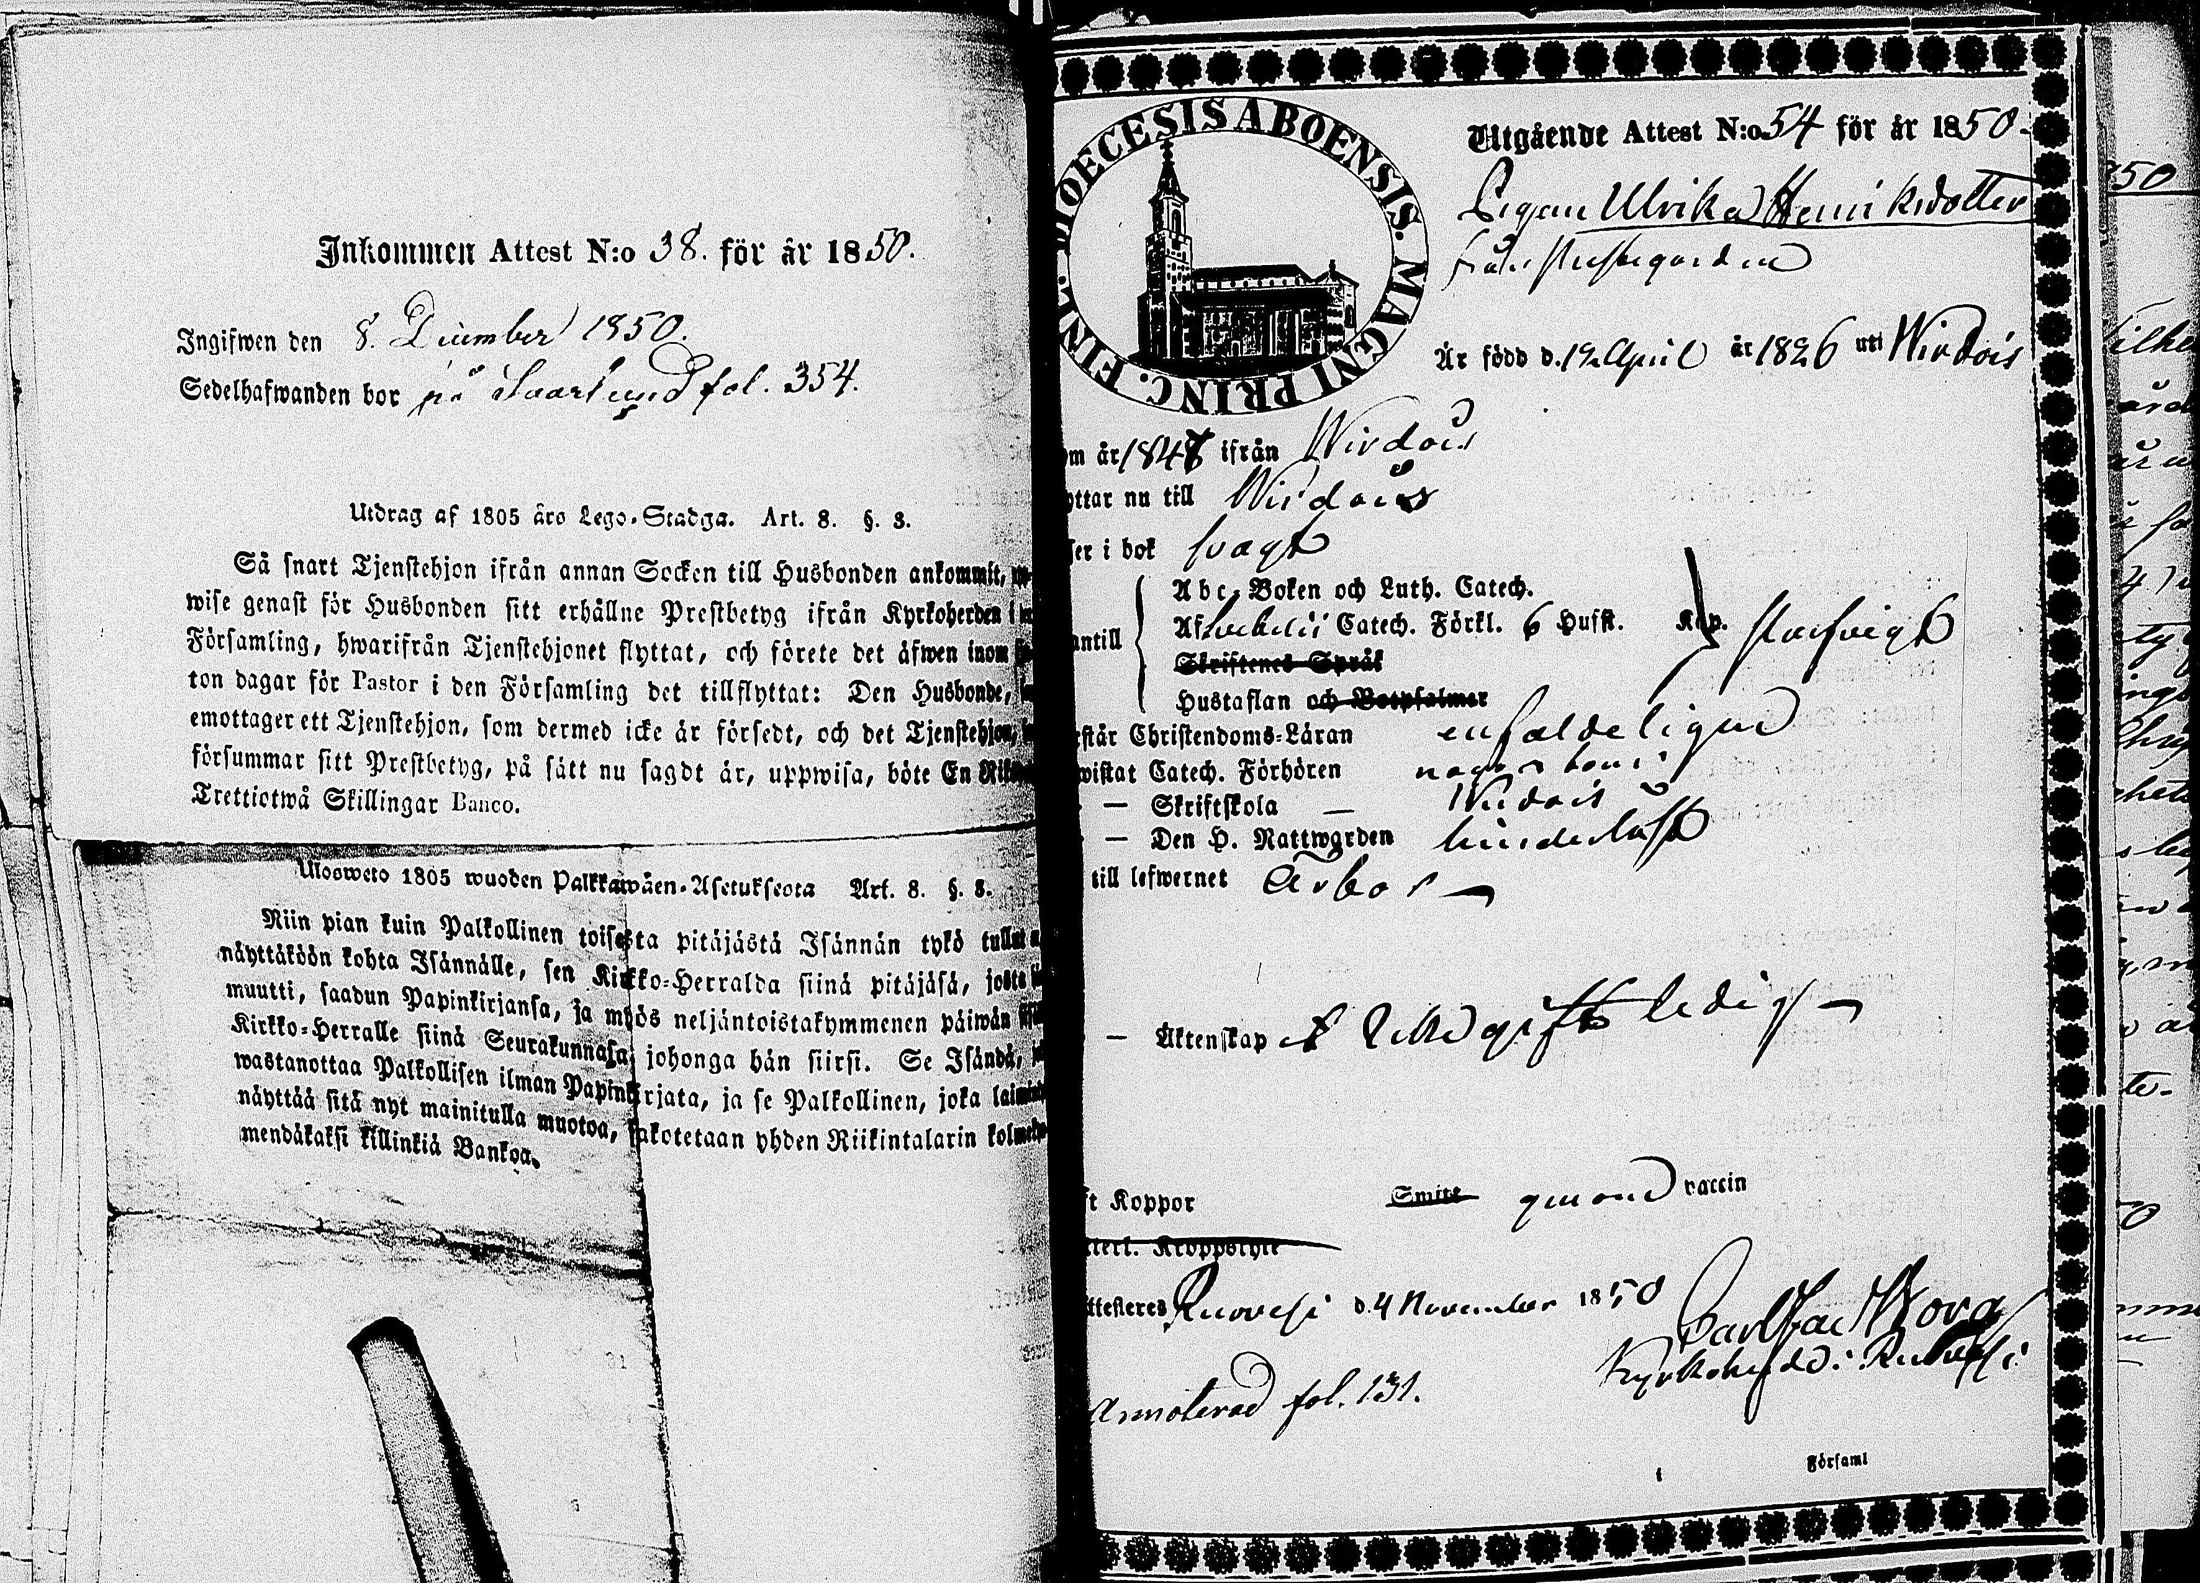 Inkommen Attest N:o 38. för år 1850.
Ingifwen den 8. December 1850.
Sedelhafwanden bor på Svartlund fol. 354.
Utdrag af 1805 års Lego-Stadga. Art. 8. §. 3.
Så snart Tjenstehjon ifrån annan Socken till Husbonden ankommit,
wise genast för Husbonden sitt erhållne Prestbetyg ifrån Kyrkoherden i
Församling, hwarifrån Tjenstehjonet flyttat, och förete det äfwen inom
ton dagar för Pastor i den Församling det tillflyttat: Den Husbonde,
emottager ett Tjenstehjon, som dermed icke är försedt, och det Tjenstehjon,
försummar sitt Prestbetyg, på sätt nu sagdt är, uppwisa, böte En
Trettiotwå Skillingar Banco.
Ulosweto 1805 wuoden Palkkawäen-Asetuksesta Art. 8. §. 3.
Niin pian kuin Palkollinen toisesta pitäjästä Isännän tykö tullut
näyttäköön kohta Isännälle, sen Kirkko-Herralda siinä pitäjäsä, josta
muutti, saadun Papinkirjansa, ja myös neljäntoistakymmenen päiwän
Kirkko-Herralle siinä Seurakunnasa, johonga hän siirsi. Se Isändä,
wastanottaa Palkollisen ilman Papinkirjata, ja se Palkollinen, joka
näyttää sitä nyt mainitulla muotoa, sakotetaan yhden Riikintalarin
mendäkaksi killinkiä Bankoa.
DIOECESIS ABOENSIS. MAGNI PRINC. FINL.
Utgående Attest N:o 54 för år 1850.
Pigan Ulrika Henriksdotter
från Prestegården
Är född d. 12 April år 1826 uti Wirdois
om år 1848 ifrån Wirdois
yttar nu till Wirdois
ser i bok svagt
Abc-Boken och Luth. Catech.
antill Af Svebelii Catech. Förkl. 6 Hufst. Kap. svagt
Skriftenes Språk
Hustaflan och Botpsalmer
rstår Christendoms-Läran enfaldeligen
wistat Catech. Förhören
— Skriftskola — Wirdois
— Den H. Nattwarden hinderlöst
till lefwernet Ärbar
— Äktenskap ledig
ft Koppor Smitt genom vaccin
tterl. Kroppslyte
ttesteres Ruovesi d. 4 November 1850
Carl Borg
Kyrkoherde i Ruovesi
Annoterad fol. 131.
Församl